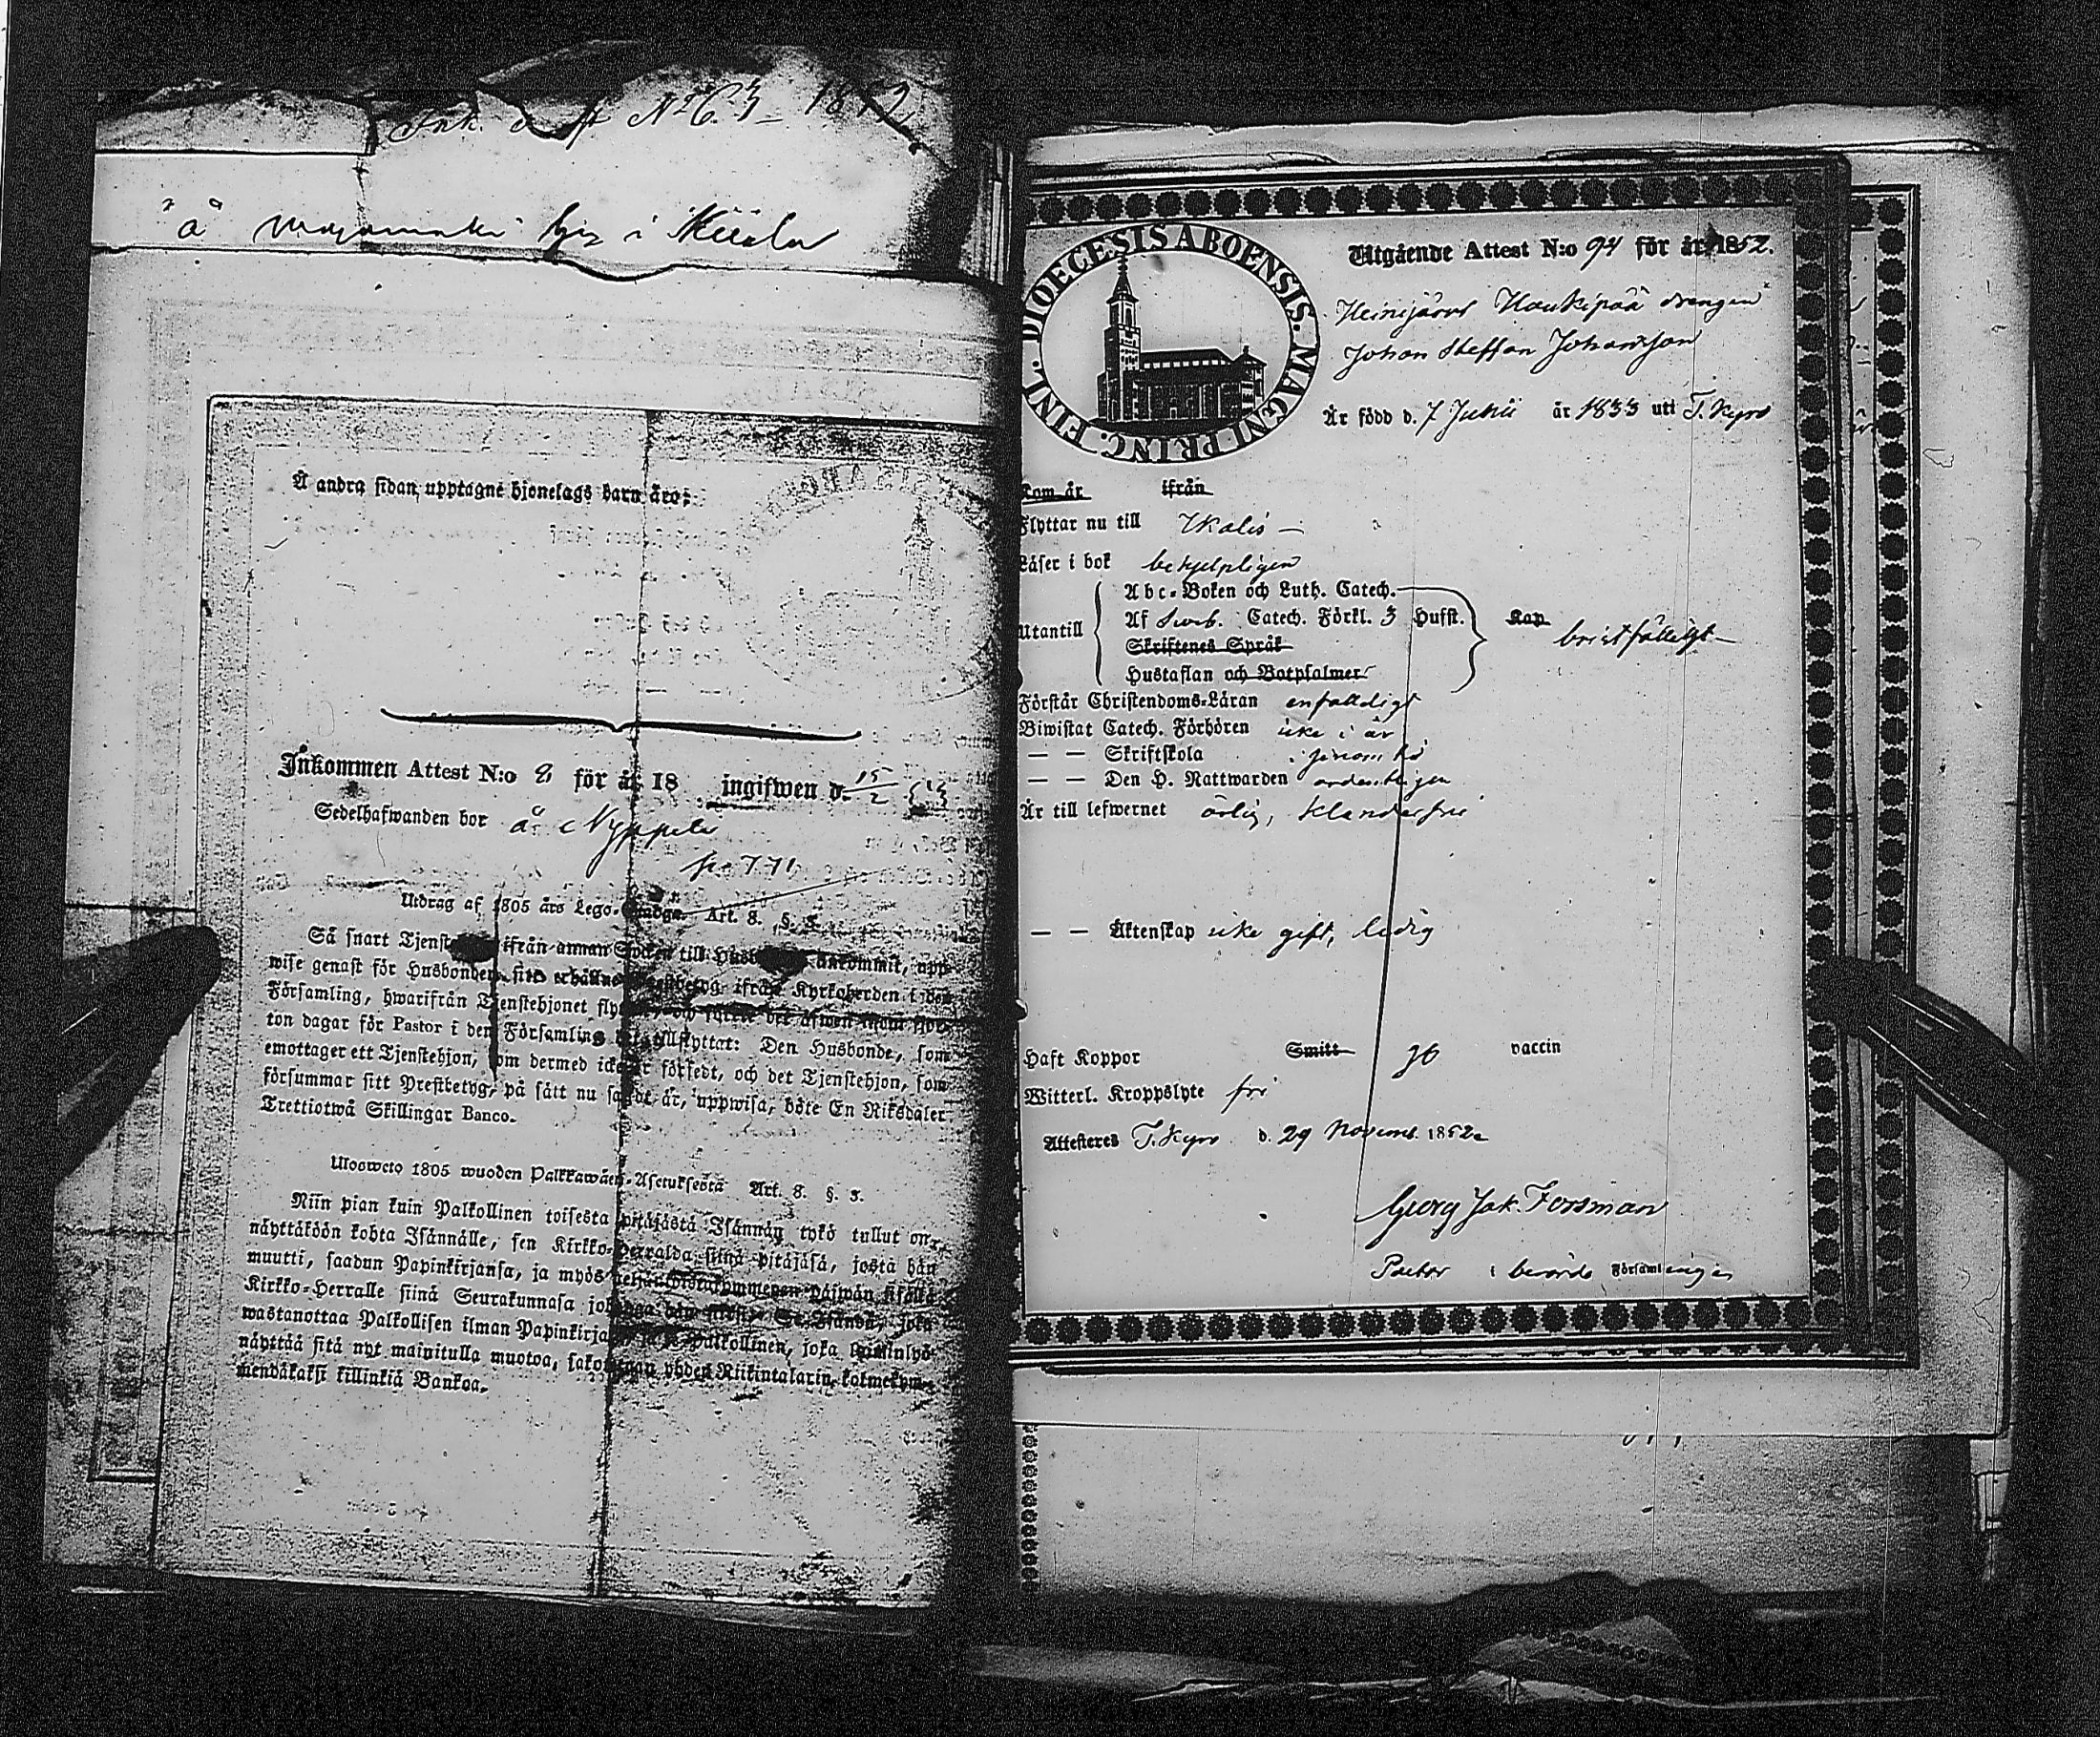 Ink. N:o 63 1852
"å" Myyamaki by i
Å andra sidan upptagne hjonelags barn äro:
Inkommen Attest N:o 8 för år 18 ingifwen d. 15/2 53
Sedelhafwanden bor å Nyppeli
p. 771
Utdrag af 1805 års Lego-Stadga. Art. 8. §. 3.
Så snart Tjenst ifrån annan Socken till Husb ankommit, upp-
wise genast för Husbonden sitt erhållne ifrån Kyrkoherden i den
Församling, hwarifrån Tjenstehjonet fly och det äfwen inom fjor-
ton dagar för Pastor i den Församling tillflyttat: Den Husbonde, som
emottager ett Tjenstehjon, som dermed icke är försedt, och det Tjenstehjon, som
försummar sitt Prestbetyg, på sätt nu sagdt är, uppwisa, böte En Riksdaler
Trettiotwå Skillingar Banco.
Ulosweto 1805 wuoden Palkkawäen-Asetuksesta Art. 8. §. 3.
Niin pian kuin Palkollinen toisesta pitäjästä Isännän tykö tullut on,
näyttäköön kohta Isännälle, sen Kirkko-Herralda siinä pitäjäsä, josta hän
muutti, saadun Papinkirjansa, ja myös neljäntoistakymmenen päiwän sisällä
Kirkko-Herralle siinä Seurakunnasa johonga hän siirsi. Se Isändä, joka
wastanottaa Palkollisen ilman Papinkirja ja se Palkollinen, joka laiminlyö
näyttää sitä nyt mainitulla muotoa, sakotetaan yhden Riikintalarin kolmekym-
mendäkaksi killinkiä Bankoa.
DIOECESIS ABOENSIS. MAGNI PRINC. FINL.
Utgående Attest N:o 94 för år 1852.
Heinijärvi Haukipää drengen
Johan Steffan Johansson
Är född d. 7 Junii år 1833 uti T. Kyro
Kom år ifrån
Flyttar nu till Ikalis —
Läser i bok behjelpligen
Abc-Boken och Luth. Catech.
Utantill Af Sweb. Catech. Förkl. 3 Hufst. Kap bristfälligt
Skriftenes Språk
Hustaflan och Botpsalmer
Förstår Christendoms-Läran enfaldigt
Biwistat Catech. Förhören icke i år
— — Skriftskola genomgå
— — Den H. Nattwarden ordentligen
Är till lefwernet ärlig, klanderfri
— — Äktenskap icke gift, ledig
Haft Koppor Smitt ge vaccin
Witterl. Kroppslyte fri
Attesteres T. Kyro d. 29 Novemb. 1852
Georg Jak. Forsman
Pastor i berörde Församlingen